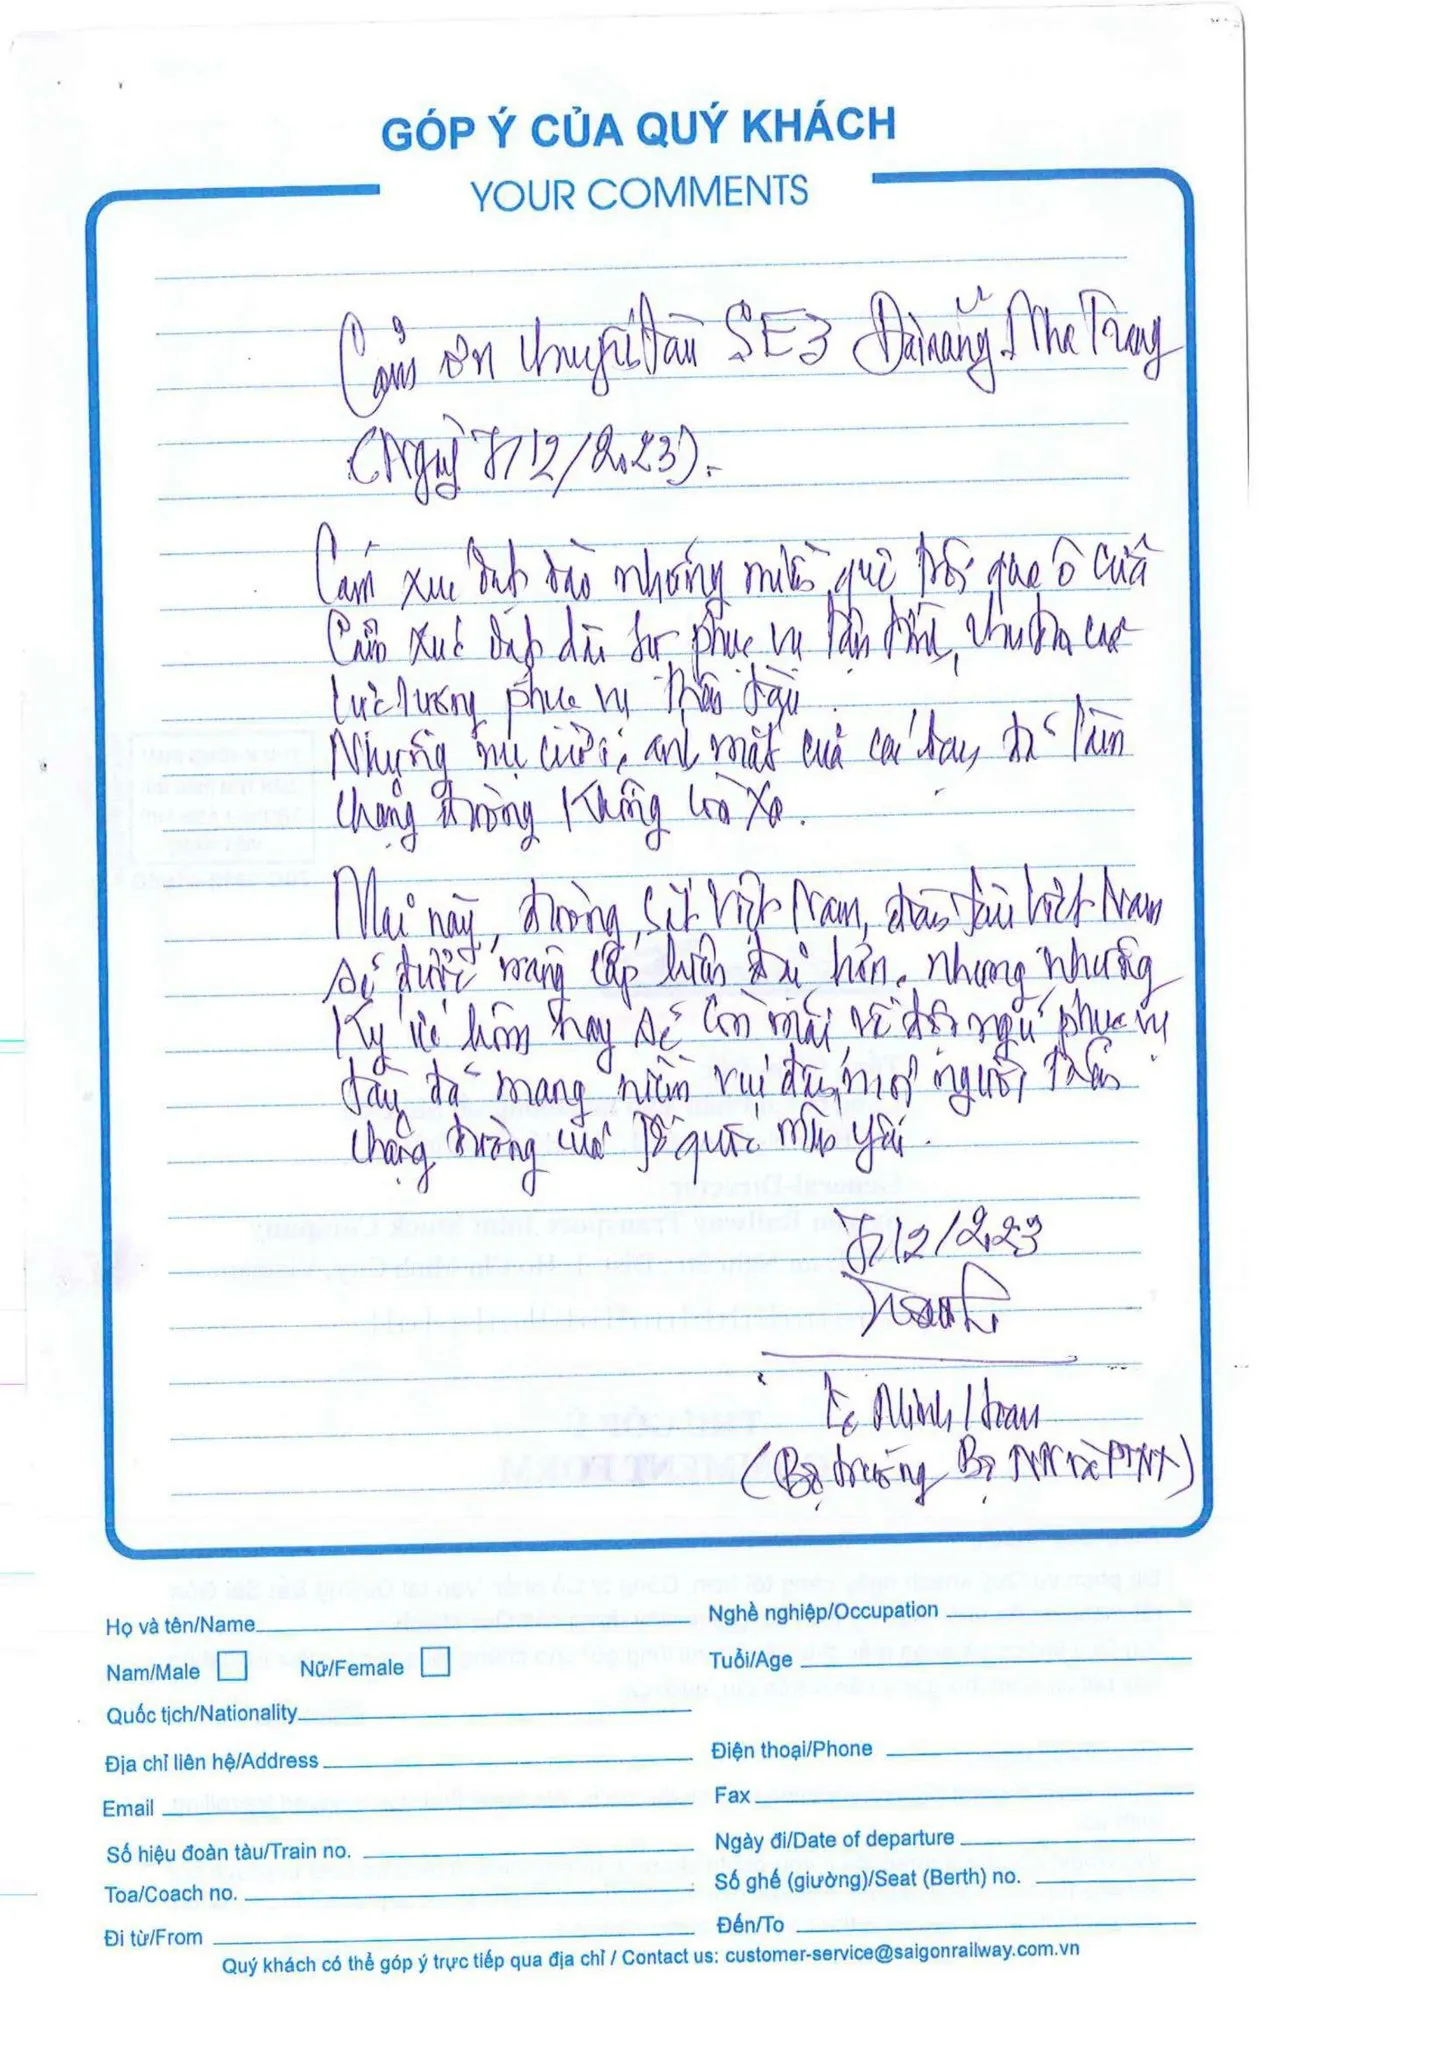 GÓP Ý CỦA QUÝ KHÁCH
YOUR COMMENTS
Cảm ơn chuyến tàu SE3 Đà nẵng. Nha Trang
(Ngày 7/12/2023).
Cảm xúc dạt dào những miền quê trôi qua ô cửa
Cảm xúc dạt dào sự phục vụ tận tình, chu đáo của
lực lượng phục vụ trên tàu.
Những nụ cười, ánh mắt của các bạn, đã làm
chặng đường không còn xa.
Mai này, đường sắt Việt Nam, đoàn tàu Việt Nam
sẽ được nâng cấp hiện đại hơn. nhưng những
ký ức hôm nay sẽ còn mãi về đội ngũ phục vụ
tàu đã mang niềm vui đến mọi người trên
chặng đường của Tổ quốc mến yêu.
7/12/2023
Lê Minh Hoan
(Bộ trưởng Bộ NN và PTNT)
Họ và tên/Name
Nghề nghiệp/Occupation
Nam/Male Nữ/Female
Tuổi/Age
Quốc tịch/Nationality
Địa chỉ liên hệ/Address
Điện thoại/Phone
Email
Fax
Số hiệu đoàn tàu/Train no.
Ngày đi/Date of departure
Toa/Coach no.
Số ghế (giường)/Seat (Berth) no.
Đi từ/From
Đến/To
Quý khách có thể góp ý trực tiếp qua địa chỉ / Contact us: customer-service@saigonrailway.com.vn